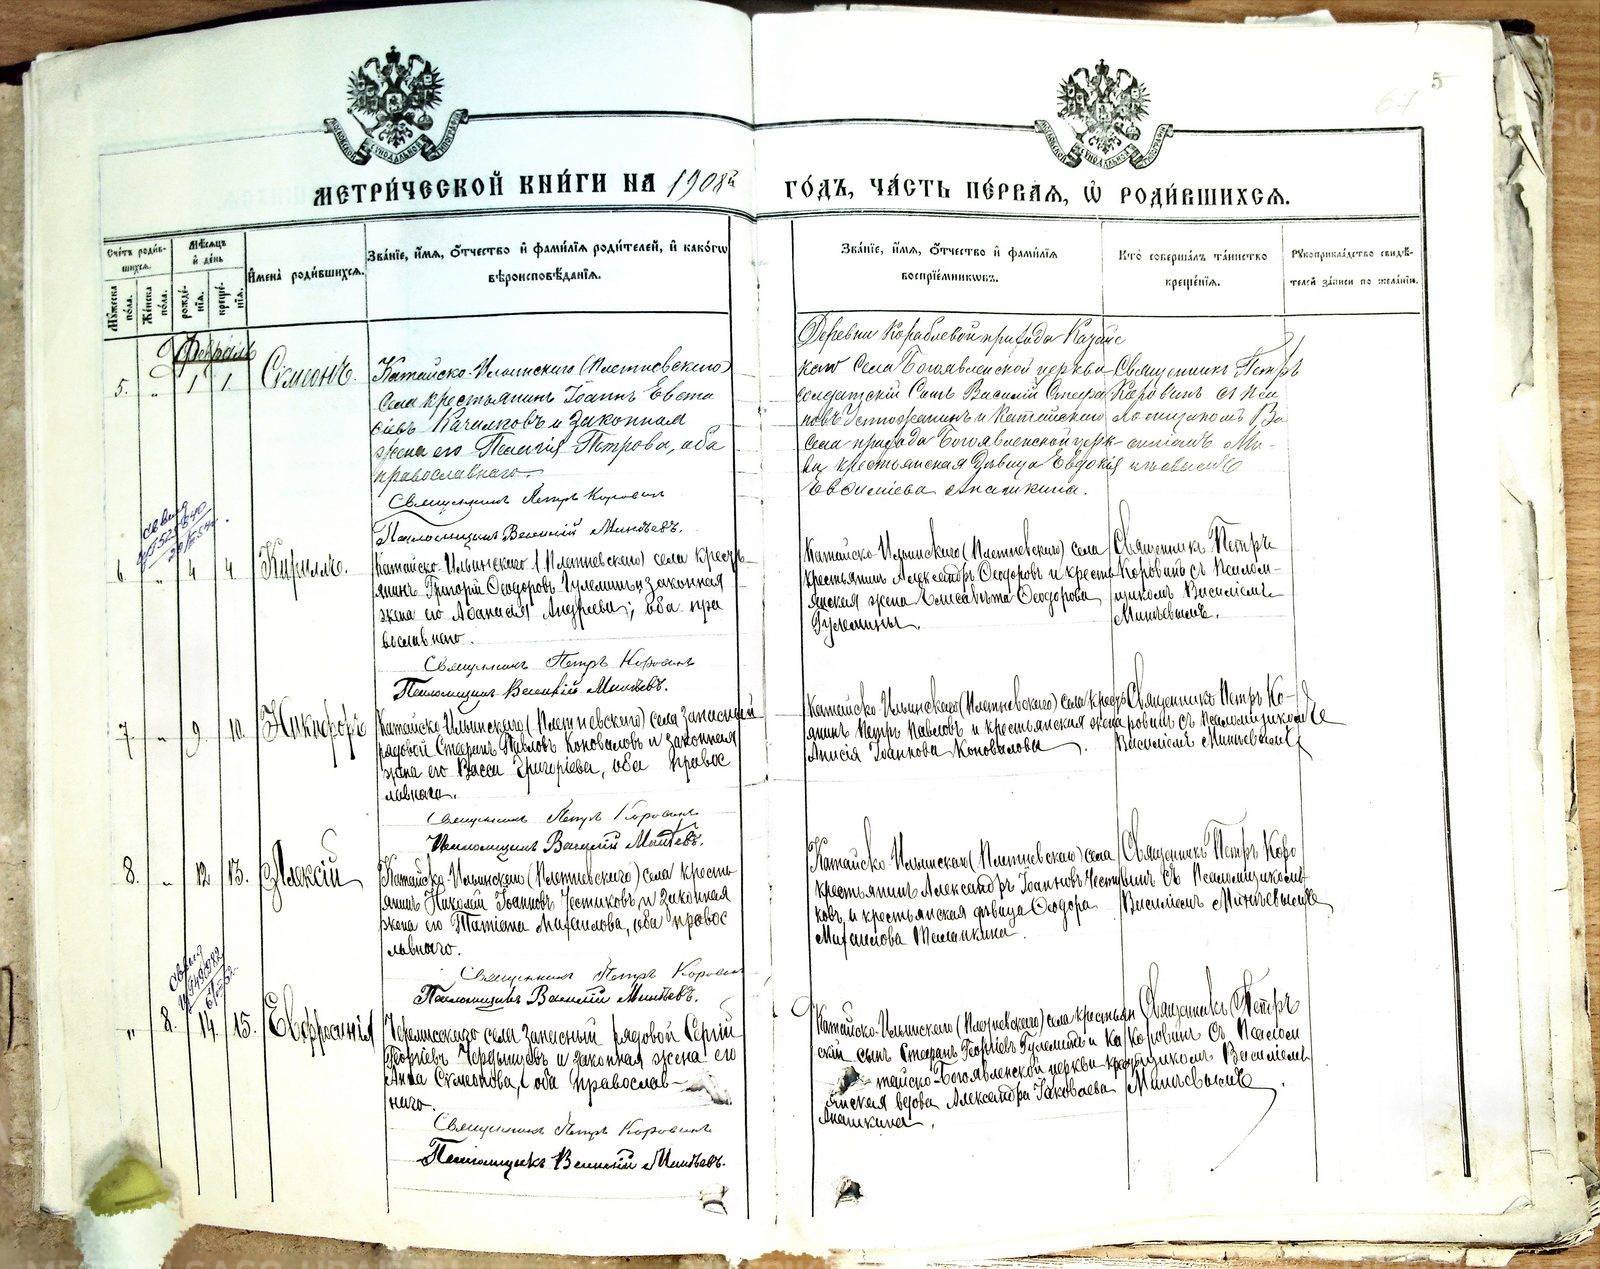 5
МЕТРИ́ЧЕСКОЙ КНИ́ГИ НА 1908й ГО́ДЪ, ЧА́СТЬ ПЕ́РВАЯ, Ѡ РОДИ́ВШИХСЯ.
Счётъ роди́вшихся.
Му́жеска по́ла.
Же́нска по́ла.
Мѣ́сяцъ и день
рожде́нїя.
креще́нїя.
Имена̀ роди́вшихся.
Зва́нїе, и́мя, о́тчество и фами́лїя роди́телей, и како́гѡ
вѣроисповѣ́данїя.
Зва́нїе, и́мя, о́тчество и фами́лїя
воспрїе́мникѡвъ.
Кто̀ соверша́лъ та́инство
креще́нїя.
Рукоприкла́дство свидѣ́-
телей за́писи по жела́нїю.
Февраль
5. " 1 1 Сѵмеонъ.
Катайско-Ильинскаго (Плетневскаго)
села крестьянинъ Іоаннъ Евста
и законная
жена его Пелагія Петрова, оба
православнаго.
Священникъ Петръ Коровинъ
Псаломщикъ Василій Минѣевъ.
Деревни Кораблевой прихода Катайс
каго села Богоявленской церкви
солдатскій сынъ Василій Стефа
новъ и Катайскаго
села прихода Богоявленской церк
ви крестьянская дѣвица Евдокія
Евфиміева Аношкина.
Священникъ Петръ
Коровинъ съ Пса
ломщикомъ Ва
силіемъ Ми-
нѣевымъ
6. " 4 4 Кириллъ.
Катайско-Ильинскаго (Плетневскаго) села кресть
янинъ Григорій Ѳеодоровъ Гулеминъ и законная
жена его Аѳанасія Андреева; оба пра
вославнаго.
Священникъ Петръ Коровинъ
Псаломщикъ Василій Минѣевъ.
Катайско-Ильинскаго (Плетневскаго) села
крестьянинъ Александръ Ѳеодоровъ и кресть
янская жена Елисавета Ѳеодорова
Гулемины.
Священникъ Петръ
Коровинъ съ Псалом-
щикомъ Василіемъ
Минѣевымъ.
7. " 9 10. Никифоръ
Катайско-Ильинскаго (Плетневскаго) села запасный
рядовой Стефанъ Павловъ Коноваловъ и законная
жена его Васса Григоріева, оба правос
лавнаго.
Священникъ Петръ Коровинъ
Псаломщикъ Василій Минѣевъ.
Катайско-Ильинскаго (Плетневскаго) села кресть
янинъ Петръ Павловъ и крестьянская жена
Анисія Іоаннова Коноваловы.
Священникъ Петръ Ко-
ровинъ съ Псаломщикомъ
Василіемъ Минѣевымъ
8. " 12 13. Алексій
Катайско-Ильинскаго (Плетневскаго) села кресть
янинъ Николай Іоанновъ Честиковъ и законная
жена его Татіана Михаилова, оба правос
лавнаго.
Священникъ Петръ Коровинъ
Псаломщикъ Василій Минѣевъ.
Катайско-Ильинскаго (Плетневскаго) села
крестьянинъ Александръ Іоанновъ Чести
ковъ, и крестьянская дѣвица Ѳеодора
Михаилова
Священникъ Петръ Коро
винъ съ Псаломщикомъ
Василіемъ Минѣевымъ
" 8. 14. 15. Евфросинія
села запасный рядовой Сергій
Георгіевъ Чердынцевъ и законная жена его
Анна Сѵмеонова, оба православ-
наго.
Священникъ Петръ Коровинъ
Псаломщикъ Василій Минѣевъ.
Катайско-Ильинскаго (Плетневскаго) села крестьян
скій сынъ Стефанъ Георгіевъ Гулеминъ и Ка
тайско-Богоявленской церкви крест
янская вдова Александра Іаковлева
Аношкина.
Священникъ Петръ
Коровинъ съ Псалом
щикомъ Василіемъ
Минѣевымъ